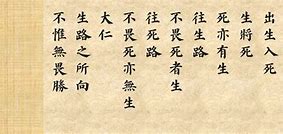 出生入死
生將死
死亦有生
往生路
不畏死者生
往死路
不畏死亦無生
大仁
生路之所向
不惟無畏勝